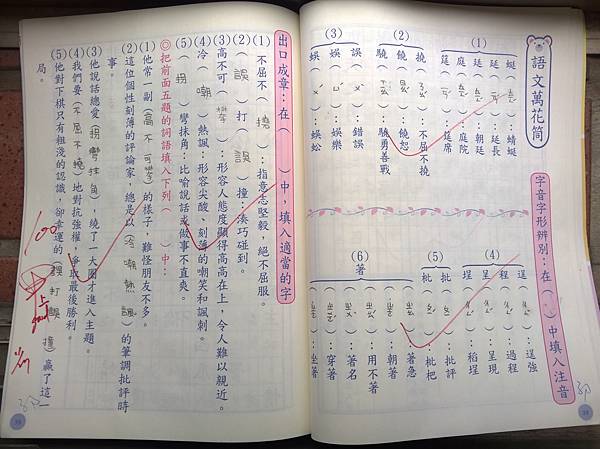 語文萬花筒
字音字形辨別:在( )中填入注音
(1)
蜓(ㄊㄧㄥˊ):蜻蜓
延(ㄧㄢˊ):延長
廷(ㄊㄧㄥˊ):朝廷
庭(ㄊㄧㄥˊ):庭院
筵(ㄧㄢˊ):筵席
(2)
撓(ㄋㄠˊ):不屈不撓
饒(ㄖㄠˊ):饒恕
驍(ㄒㄧㄠ):驍勇善戰
(3)
誤(ㄨˋ):錯誤
娛(ㄩˊ):娛樂
蜈(ㄨˊ):蜈蚣
(4)
逞(ㄔㄥˇ):逞強
程(ㄔㄥˊ):過程
呈(ㄔㄥˊ):呈現
埕(ㄔㄥˊ):稻埕
(5)
批(ㄆㄧ):批評
枇(ㄆㄧˊ):枇杷
(6)
著
:著急
:朝著
:用不著
:著名
:穿著
:坐著
出口成章:在( )中,填入適當的字
(1)不屈不(撓):指意志堅毅,絕不屈服。
(2)(誤)打(誤)撞:湊巧碰到。
(3)高不可(攀):形容人態度顯得高高在上,令人難以親近。
(4)冷(嘲)熱諷:形容尖酸、刻薄的嘲笑和諷刺。
(5)(拐)彎抹角:比喻說話或做事不直爽。
◎把前面五題的詞語填入下列( )中:
(1)他常一副(高不可攀)的樣子,難怪朋友不多。
(2)這位個性刻薄的評論家,總是以(冷嘲熱諷)的筆調批評時
事。
(3)他說話總愛(拐彎抹角),繞了一大圈才進入主題。
(4)我們要(不屈不撓)地對抗強權,爭取最後勝利。
(5)他對下棋只有粗淺的認識,卻幸運的(誤打誤撞)贏了這一
局。
100